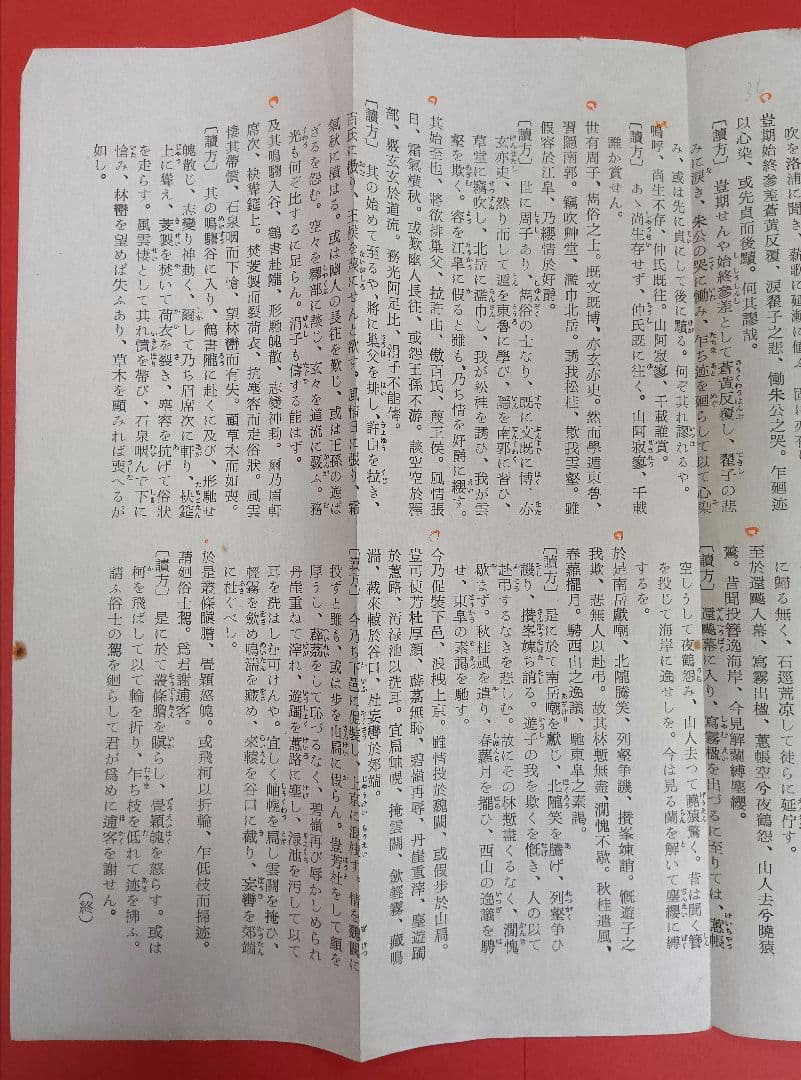 吹を洛浦に聞き、薪歌に延瀬に値ふ、固に亦有
豈期始終參差蒼黃反覆、淚翟子之悲、慟朱公之哭。乍廻迹
以心染、或先貞而後黷。何其謬哉。
〔讀方〕 豈期せんや始終參差として蒼黃反覆し、翟子の悲
みに淚き、朱公の哭に慟み、乍ち迹を廻らして以て心染
み、或は先に貞にして後に黷る。何ぞ其れ謬れるや。
嗚呼、尚生不存、仲氏既往。山阿寂寥、千載誰賞。
〔讀方〕 あゝ尚生存せず、仲氏既に往く。山阿寂寥、千載
誰か賞せん。
世有周子、雋俗之士。既文既博、亦玄亦史。然而學遁東魯、
習隱南郭。竊吹艸堂、濫巾北岳。誘我松桂、欺我雲壑。雖
假容於江皐、乃纓情於好爵。
〔讀方〕 世に周子あり、雋俗の士なり、既に文既に博、亦
玄亦史、然り而して遁を東魯に學び、隱を南郭に習ひ、
草堂に竊吹し、北岳に濫巾し、我が松桂を誘ひ、我が雲
壑を欺く。容を江皐に假ると雖も、乃ち情を好爵に纓す。
其始至也、將欲排巢父、拉許由、傲百氏、蔑王侯。風情張
日、霜氣橫秋。或歎幽人長往、或怨王孫不游。談空空於釋
部、覈玄玄於道流。務光何足比、涓子不能儔。
〔讀方〕 其の始めて至るや、將に巢父を排し、許由を拉き、
百氏に傲り、王侯を蔑にせんと欲す。風情日に張り、霜
氣秋に橫はる。或は幽人の長往を歎じ、或は王孫の遊ば
ざるを怨む。空々を釋部に談じ、玄々を道流に覈ぶ。務
光も何ぞ比するに足らん。涓子も儔する能はず。
及其鳴騶入谷、鶴書赴隴、形馳魄散、志變神動。爾乃眉軒
席次、袂聳筵上。焚芰製而裂荷衣、抗塵容而走俗狀。風雲
悽其帶憤、石泉咽而下愴、望林巒而有失。顧草木而如喪。
〔讀方〕 其の鳴騶谷に入り、鶴書隴に赴くに及び、形馳せ
魄散じ、志變り神動く、爾して乃ち眉席次に軒り、袂筵
上に聳え、芰製を焚いて荷衣を裂き、塵容を抗げて俗狀
を走らす。風雲悽として其れ憤を帶び、石泉咽んで下に
愴み、林巒を望めば失ふあり、草木を顧みれば喪へるが
如し。
に歸る無く、石逕荒凉として徒らに延佇す。
至於還飈入幕、寫霧出楹、蕙帳空兮夜鶴怨、山人去兮曉猿
驚。昔聞投簪逸海岸、今見解蘭縛塵纓。
〔讀方〕 還飈幕に入り、寫霧楹を出づるに至りては、蕙帳
空しうして夜鶴怨み、山人去つて曉猿驚く。昔は聞く簪
を投じて海岸に逸せしを。今は見る蘭を解いて塵纓に縛
するを。
於是南岳獻嘲、北隴騰笑、列壑爭譏、攢峯竦誚。慨遊子之
我欺、悲無人以赴弔。故其林慙無盡、澗愧不歇。秋桂遣風、
春蘿擺月。騁西山之逸議、馳東皐之素謁。
〔讀方〕 是に於て南岳嘲を獻じ、北隴笑を騰げ、列壑爭ひ
譏り、攢峯竦ち誚る。遊子の我を欺くを慨き、人の以て
赴弔するなきを悲しむ。故にその林慙盡くるなく、澗愧
歇まず。秋桂風を遣り、春蘿月を擺ひ、西山の逸議を騁
せ、東皐の素謁を馳す。
今乃促裝下邑、浪栧上京。雖情投於魏闕、或假步於山扃。
豈可使芳杜厚顏、薜茘無恥、碧嶺再辱、丹崖重滓、塵遊躅
於蕙路、汚淥池以洗耳。宜扃岫幌、掩雲關、斂輕霧、藏鳴
湍、截來轅於谷口、杜妄轡於郊端。
〔讀方〕 今乃ち下邑に促裝し、上京に浪栧す。情を魏闕に
投ずと雖も、或は步を山扃に假らん。豈芳杜をして顏を
厚うし、薜茘をして恥づるなく、碧嶺再び辱かしめられ
丹崖重ねて滓れ、遊躅を蕙路に塵し、淥池を汚して以て
耳を洗はしむ可けんや。宜しく岫幌を扃し雲關を掩ひ、
輕霧を斂め鳴湍を藏め、來轅を谷口に截り、妄轡を郊端
に杜ぐべし。
於是叢條瞋膽、疊穎怒魄。或飛柯以折輪、乍低枝而掃迹。
請廻俗士駕。爲君謝逋客。
〔讀方〕 是に於て叢條膽を瞋らし、疊穎魄を怒らす。或は
柯を飛ばして以て輪を折り、乍ち枝を低れて迹を掃ふ。
請ふ俗士の駕を廻らして君が爲めに逋客を謝せん。
（終）